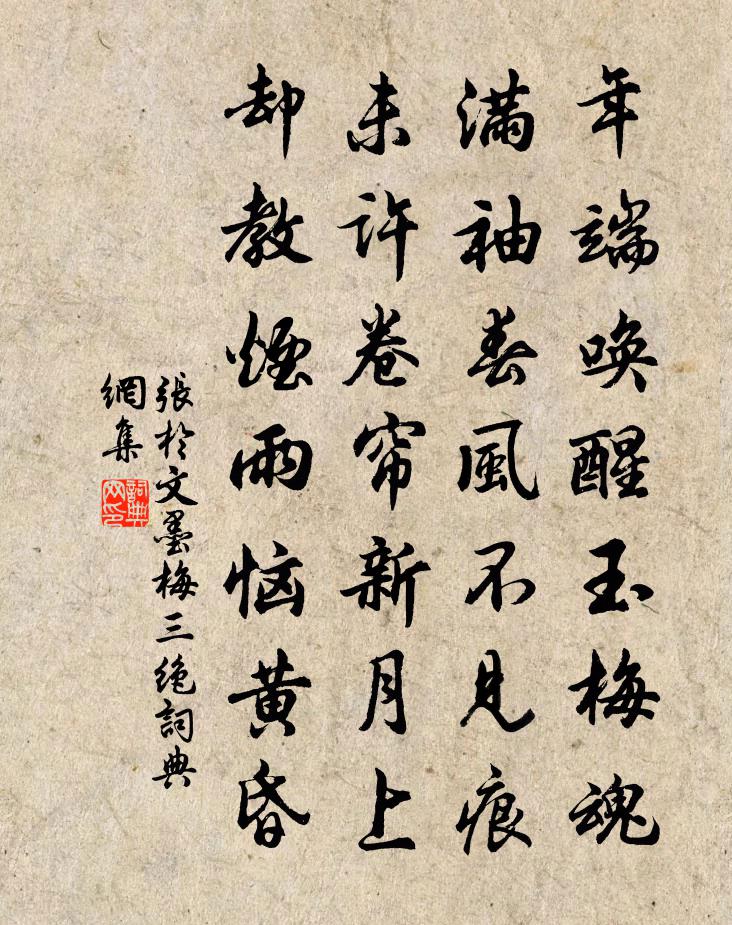 年端唤醒玉梅魂
满袖春風不見痕
未许卷帘新月上
却教煙雨恼黄昏
張於文墨梅三绝詞典
網集
詞典
网印